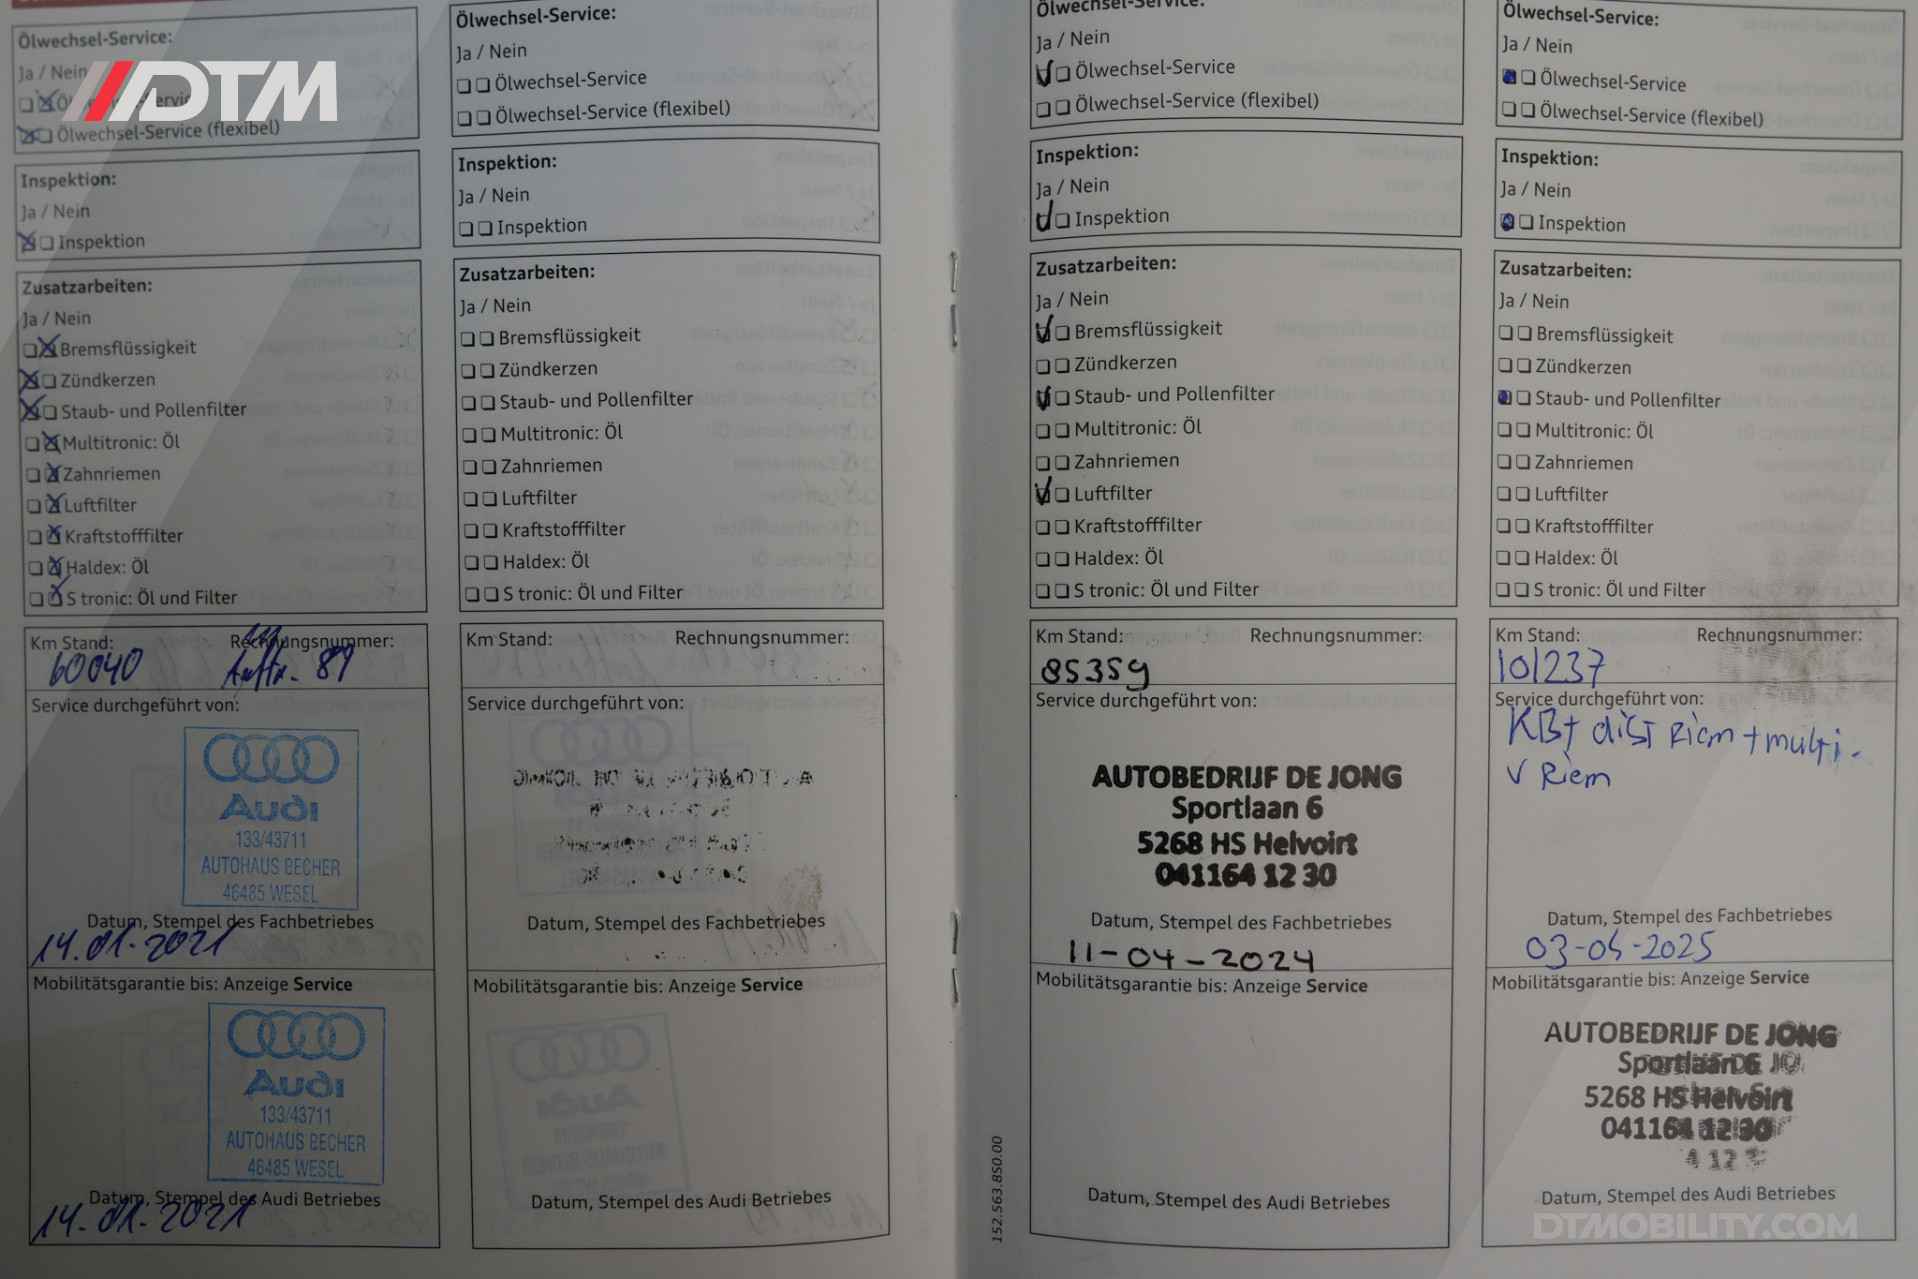 DTM
Ölwechsel-Service:
Ja / Nein
Ölwechsel-Service (flexibel)
Inspektion:
Ja / Nein
Inspektion
Zusatzarbeiten:
Ja / Nein
Bremsflüssigkeit
Zündkerzen
Staub- und Pollenfilter
Multitronic: Öl
Zahnriemen
Luftfilter
Kraftstofffilter
Haldex: Öl
S tronic: Öl und Filter
Km Stand: Rechnungsnummer:
60040 89
Service durchgeführt von:
Audi
133/43711
AUTOHAUS BECHER
46485 WESEL
Datum, Stempel des Fachbetriebes
14.01.2021
Mobilitätsgarantie bis: Anzeige Service
Audi
133/43711
AUTOHAUS BECHER
46485 WESEL
Datum, Stempel des Audi Betriebes
14.01.2021
Ölwechsel-Service:
Ja / Nein
Ölwechsel-Service
Ölwechsel-Service (flexibel)
Inspektion:
Ja / Nein
Inspektion
Zusatzarbeiten:
Ja / Nein
Bremsflüssigkeit
Zündkerzen
Staub- und Pollenfilter
Multitronic: Öl
Zahnriemen
Luftfilter
Kraftstofffilter
Haldex: Öl
S tronic: Öl und Filter
Km Stand: Rechnungsnummer:
Service durchgeführt von:
Datum, Stempel des Fachbetriebes
Mobilitätsgarantie bis: Anzeige Service
Datum, Stempel des Audi Betriebes
Ölwechsel-Service:
Ja / Nein
Ölwechsel-Service
Ölwechsel-Service (flexibel)
Inspektion:
Ja / Nein
Inspektion
Zusatzarbeiten:
Ja / Nein
Bremsflüssigkeit
Zündkerzen
Staub- und Pollenfilter
Multitronic: Öl
Zahnriemen
Luftfilter
Kraftstofffilter
Haldex: Öl
S tronic: Öl und Filter
Km Stand: Rechnungsnummer:
85359
Service durchgeführt von:
AUTOBEDRIJF DE JONG
Sportlaan 6
5268 HS Helvoirt
041164 12 30
Datum, Stempel des Fachbetriebes
11-04-2024
Mobilitätsgarantie bis: Anzeige Service
Datum, Stempel des Audi Betriebes
152.563.8S0.00
Ölwechsel-Service:
Ja / Nein
Ölwechsel-Service
Ölwechsel-Service (flexibel)
Inspektion:
Ja / Nein
Inspektion
Zusatzarbeiten:
Ja / Nein
Bremsflüssigkeit
Zündkerzen
Staub- und Pollenfilter
Multitronic: Öl
Zahnriemen
Luftfilter
Kraftstofffilter
Haldex: Öl
S tronic: Öl und Filter
Km Stand: Rechnungsnummer:
101237
Service durchgeführt von:
KBt dist Riem + multi-
v Riem
Datum, Stempel des Fachbetriebes
03-05-2025
Mobilitätsgarantie bis: Anzeige Service
AUTOBEDRIJF DE JONG
Sportlaan 6
5268 HS Helvoirt
041164 12 30
Datum, Stempel des Audi Betriebes
DTMOBILITY.COM